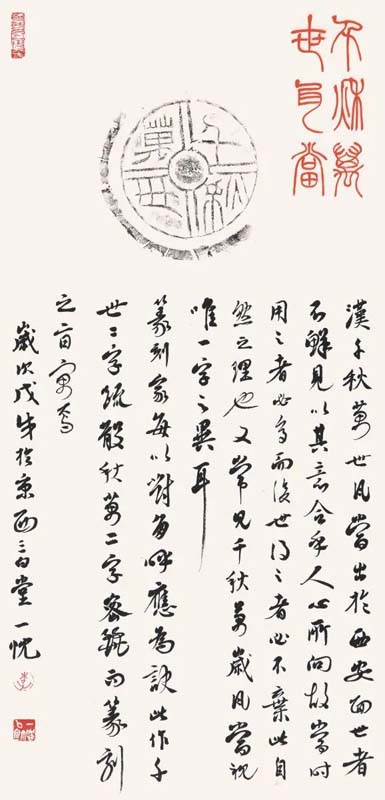 千秋萬
世瓦當
千秋
萬世
漢千秋萬世瓦當出於西安面世者
不鮮見以其意合乎人心所向故當時
用之者必多而後世得之者必不棄此自
然之理也又常見千秋萬歲瓦當視
唯一字之異耳
篆刻家每以對角呼應為訣此作千
世二字疏散秋萬二字密而篆刻
之旨寓焉
歲次戊戌於京西堂一忱